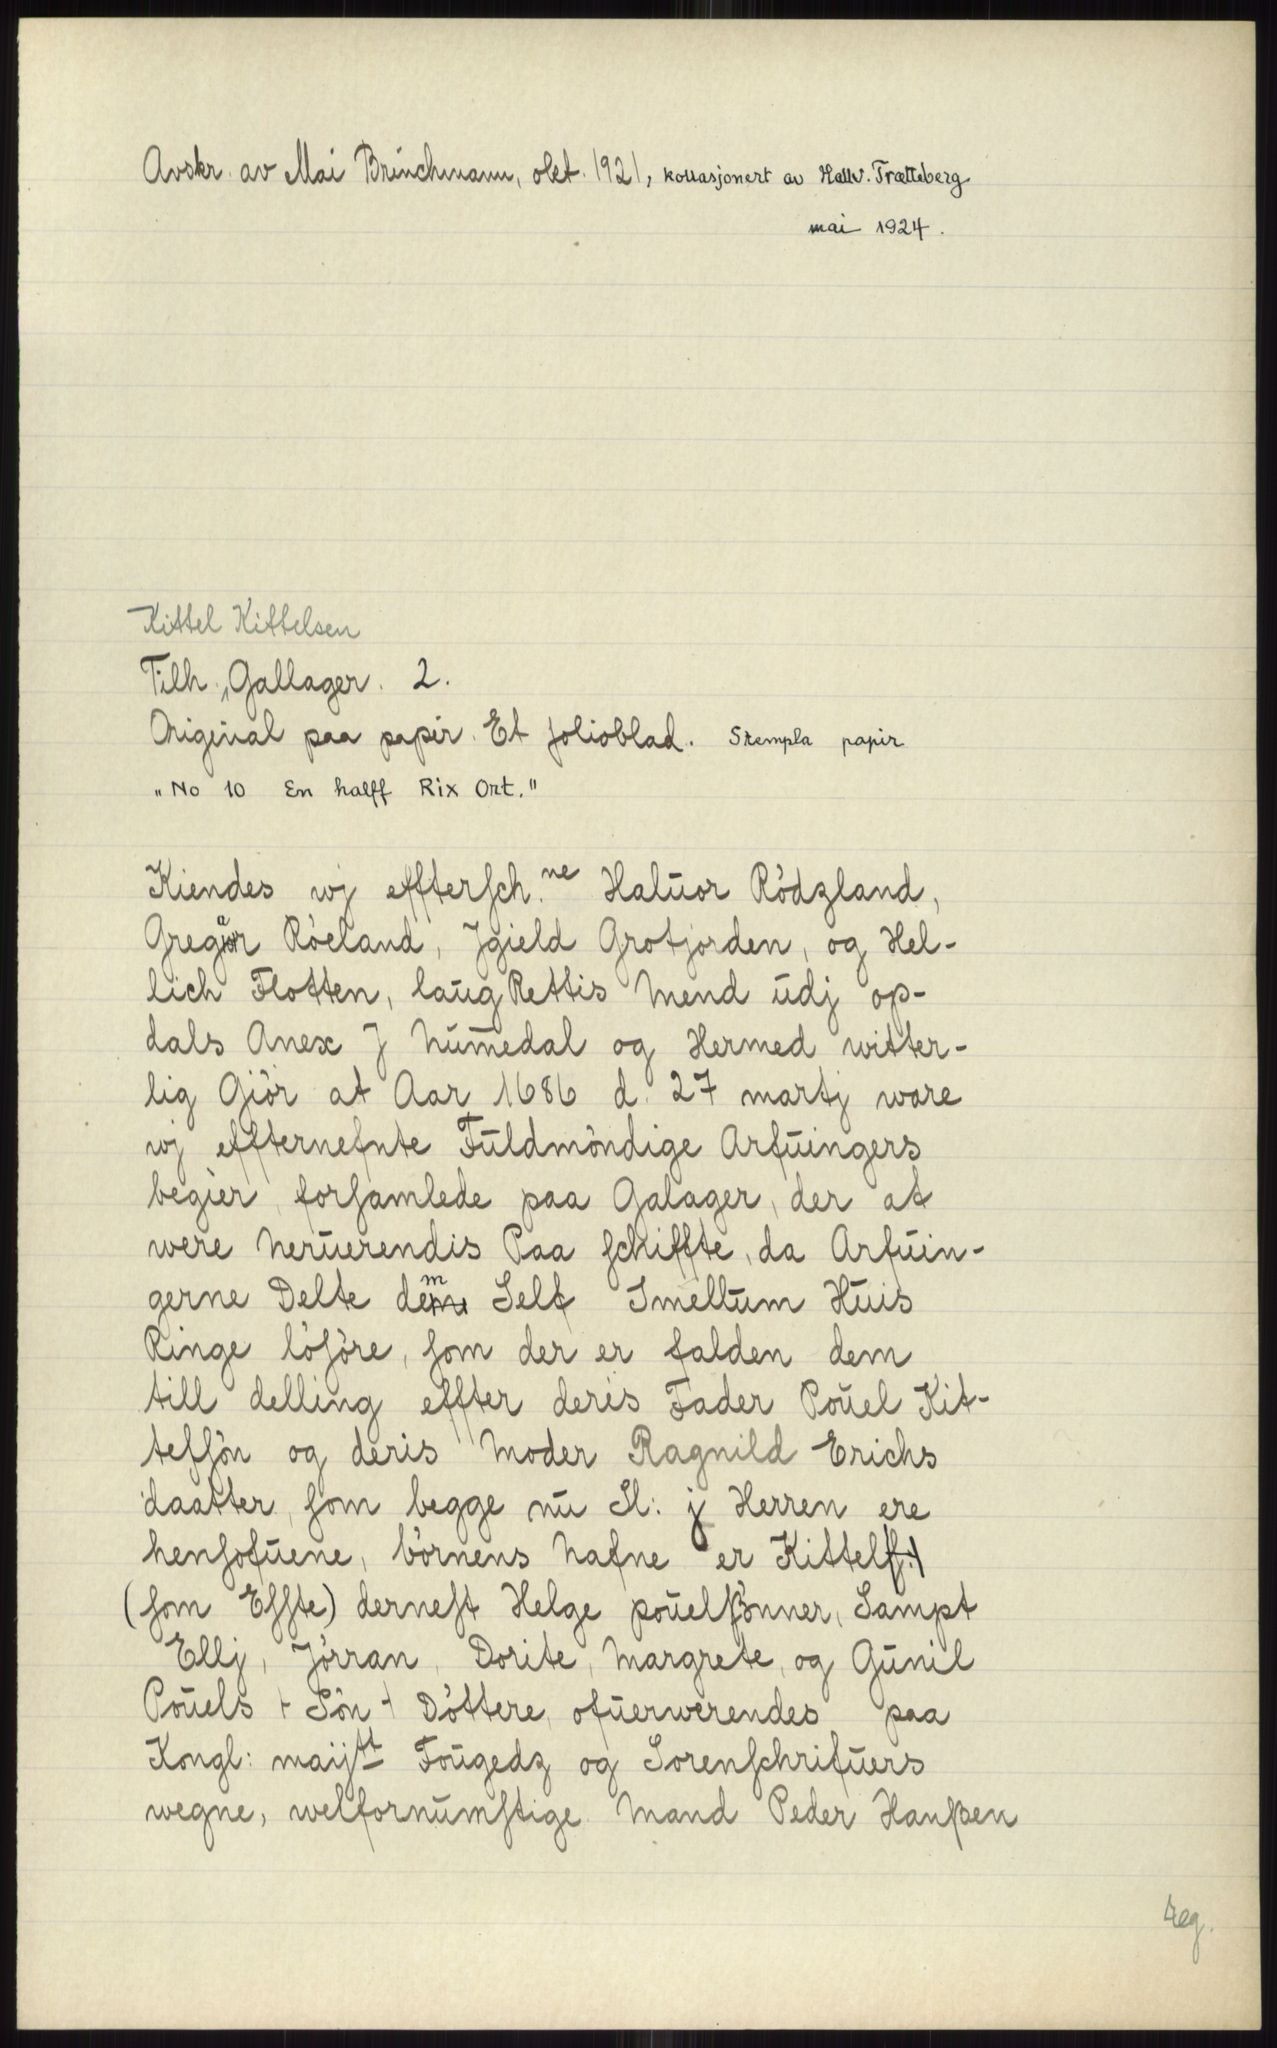 Avskr. av Mai Brinchmann, okt. 1921, kollasjonert av Hallv. Trætteberg
mai 1924.
Kittel Kittelsen
Tilh. Gallager. 2.
Original paa papir. Et folioblad. Stempla papir
"No 10 En halff Rix Ort."
Kiendes wj efftersch.ne Haluor Rödzland,
Gregår Röeland, Jgield Grotjorden, og Hel-
lich Flotten, laug Rettis Mend udj op-
dals Anex J Numedal og Hermed witter-
lig Giör at Aar 1686 d. 27 martj ware
wj effternefnte Fuldmöndige Arfuingers
begier forsamlede paa Galager, der at
were Neruerendis Paa schiffte, da Arfuin-
gerne Delte dem Self Jmellum Huis
Ringe löföre, som der er falden dem
till delling effter deris Fader Pouel Kit-
telsön og deris Moder Ragnild Erichs
daatter, som begge nu Sl: j Herren ere
hensofuene, börnens Nafne er Kittel
(som Effte) dernest Helge pouelssönner, Sampt
Ellj, Jörran, Dorite, Margrete, og Gunil
Pouels ÷ Sön ÷ Döttere, ofuerwerendes paa
Kongl: maijtt Fougedz og Sorenschrifuers
wegne, welfornumstige Mand Peder Hanssen
reg.